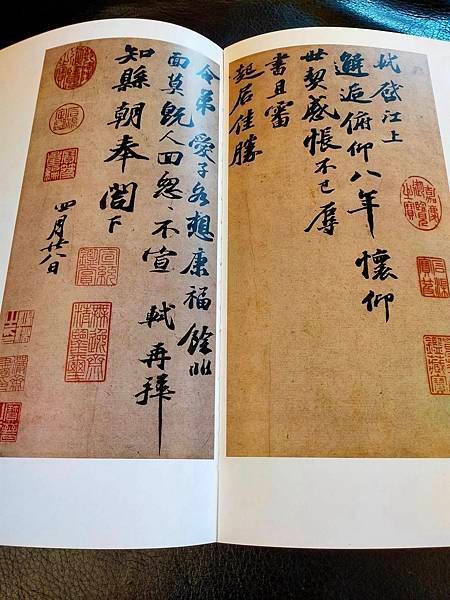 軾啓江上
邂逅俯仰八年懷仰
世契感悵不已辱
書且審
起居佳勝
令弟愛子各想康福餘非
面莫既人回怱〻不宣 軾再拜
知縣朝奉閣下
四月廿八日
嘉慶御覽之寶